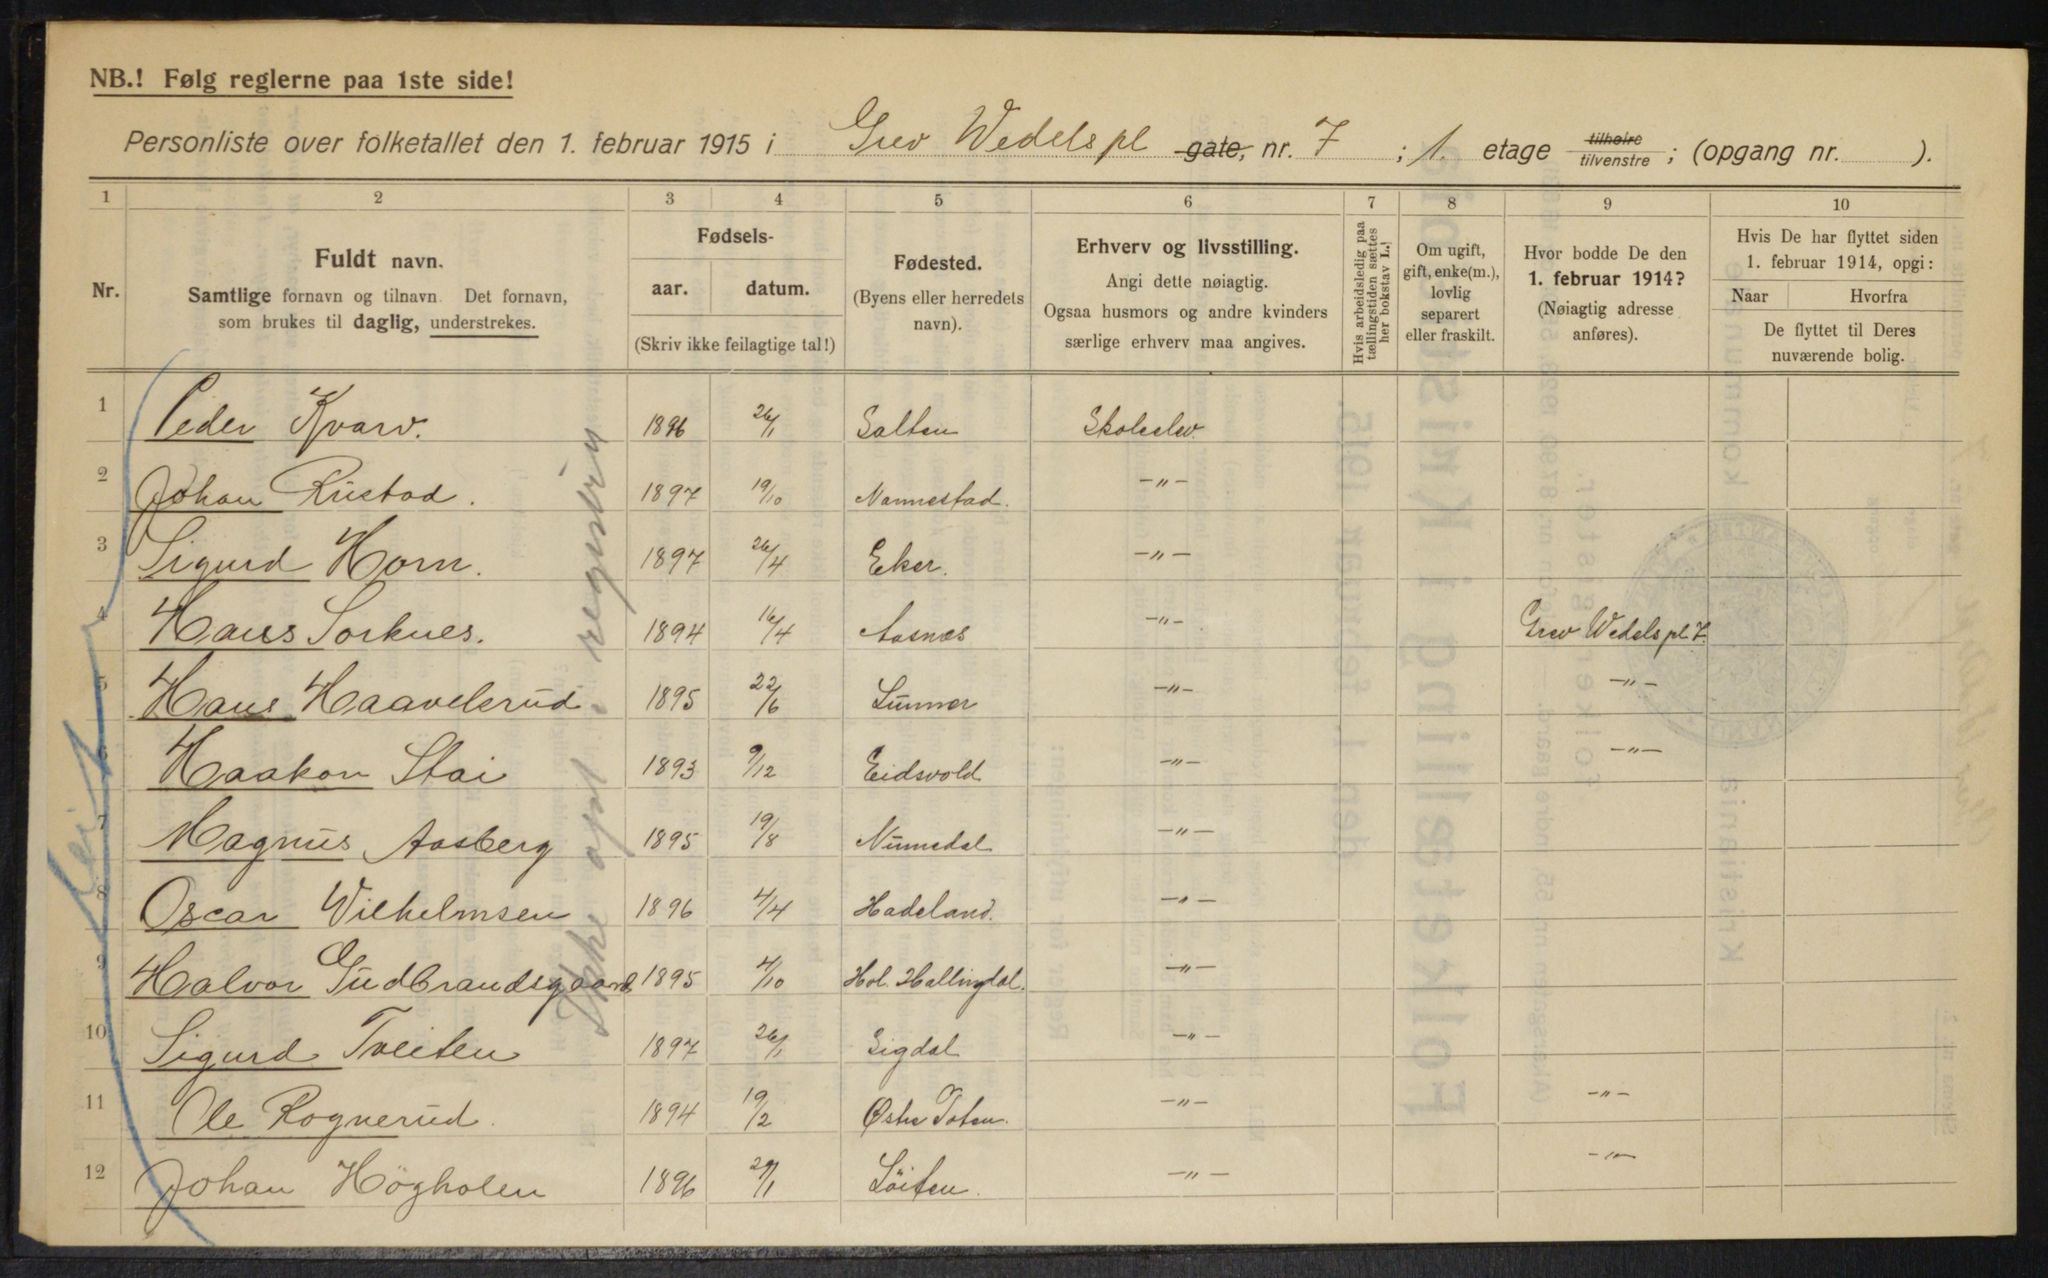 NB.! Følg reglerne paa 1ste side!
Personliste over folketallet den 1. februar 1915 i Grev Wedels pl gate, nr. 7 ; 1. etage tilhøire tilvenstre ; (opgang nr. ).
1 2 3 4 5 6 7 8 9 10
Nr.
Fuldt navn.
Samtlige fornavn og tilnavn. Det fornavn,
som brukes til daglig, understrekes.
Fødsels-
aar. datum.
(Skriv ikke feilagtige tal!)
Fødested.
(Byens eller herredets
navn).
Erhverv og livsstilling.
Angi dette nøiagtig.
Ogsaa husmors og andre kvinders
særlige erhverv maa angives.
Hvis arbeidsledig paa
tællingstiden sættes
her bokstav L.!
Om ugift,
gift, enke(m.),
lovlig
separert
eller fraskilt.
Hvor bodde De den
1. februar 1914?
(Nøiagtig adresse
anføres).
Hvis De har flyttet siden
1. februar 1914, opgi:
Naar Hvorfra
De flyttet til Deres
nuværende bolig.
1 Peder Kvarv. 1896 26/1 Salten Skoleelev.
2 Johan Rustad. 1897 19/10 Nannestad. -"-
3 Sigurd Horn. 1897 26/4 Eker. -"-
4 Hans Sorknes. 1894 16/4 Aasnes -"- Grev Wedels pl. 7.
5 Hans Haavelsrud 1895 22/6 Lunner -"- -"-
6 Haakon Stai 1893 9/12 Eidsvold -"- -"-
7 Magnus Aasberg 1895 19/8 Numedal -"-
8 Oscar Wilhelmsen 1896 4/4 Hadeland. -"-
9 Halvor Gudbrandsgaard 1895 4/10 Hol. Hallingdal. -"-
10 Sigurd Tveiten 1897 26/1 Sigdal -"-
11 Ole Rognerud. 1894 19/2 Østre Toten. -"- -"-
12 Johan Högholen 1896 29/1 Löiten. -"- -"-
Ikke opt i registrene